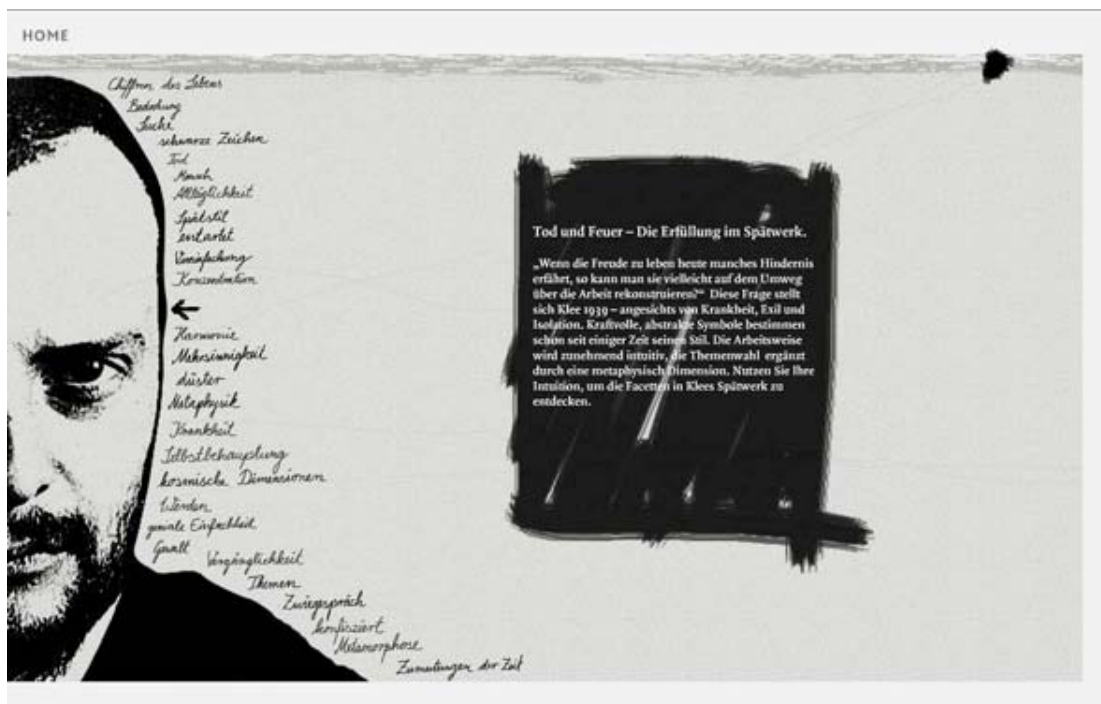 HOME
Chiffren des Lebens
Bedrohung
Suche
schwarze Zeichen
Tod
Mensch
Alltäglichkeit
Spätstil
entartet
Vereinfachung
Konzentration
Harmonie
Mehrsinnigkeit
düster
Metaphysik
Krankheit
Selbstbehauptung
kosmische Dimensionen
Werden
geniale Einfachheit
Gewalt
Vergänglichkeit
Themen
Zwiegespräch
konfisziert
Metamorphose
Zumutungen der Zeit
Tod und Feuer – Die Erfüllung im Spätwerk.
„Wenn die Freude zu leben heute manches Hindernis
erfährt, so kann man sie vielleicht auf dem Umweg
über die Arbeit rekonstruieren?“ Diese Frage stellt
sich Klee 1939 – angesichts von Krankheit, Exil und
Isolation. Kraftvolle, abstrakte Symbole bestimmen
schon seit einiger Zeit seinen Stil. Die Arbeitsweise
wird zunehmend intuitiv, die Themenwahl ergänzt
durch eine metaphysisch Dimension. Nutzen Sie Ihre
Intuition, um die Facetten in Klees Spätwerk zu
entdecken.